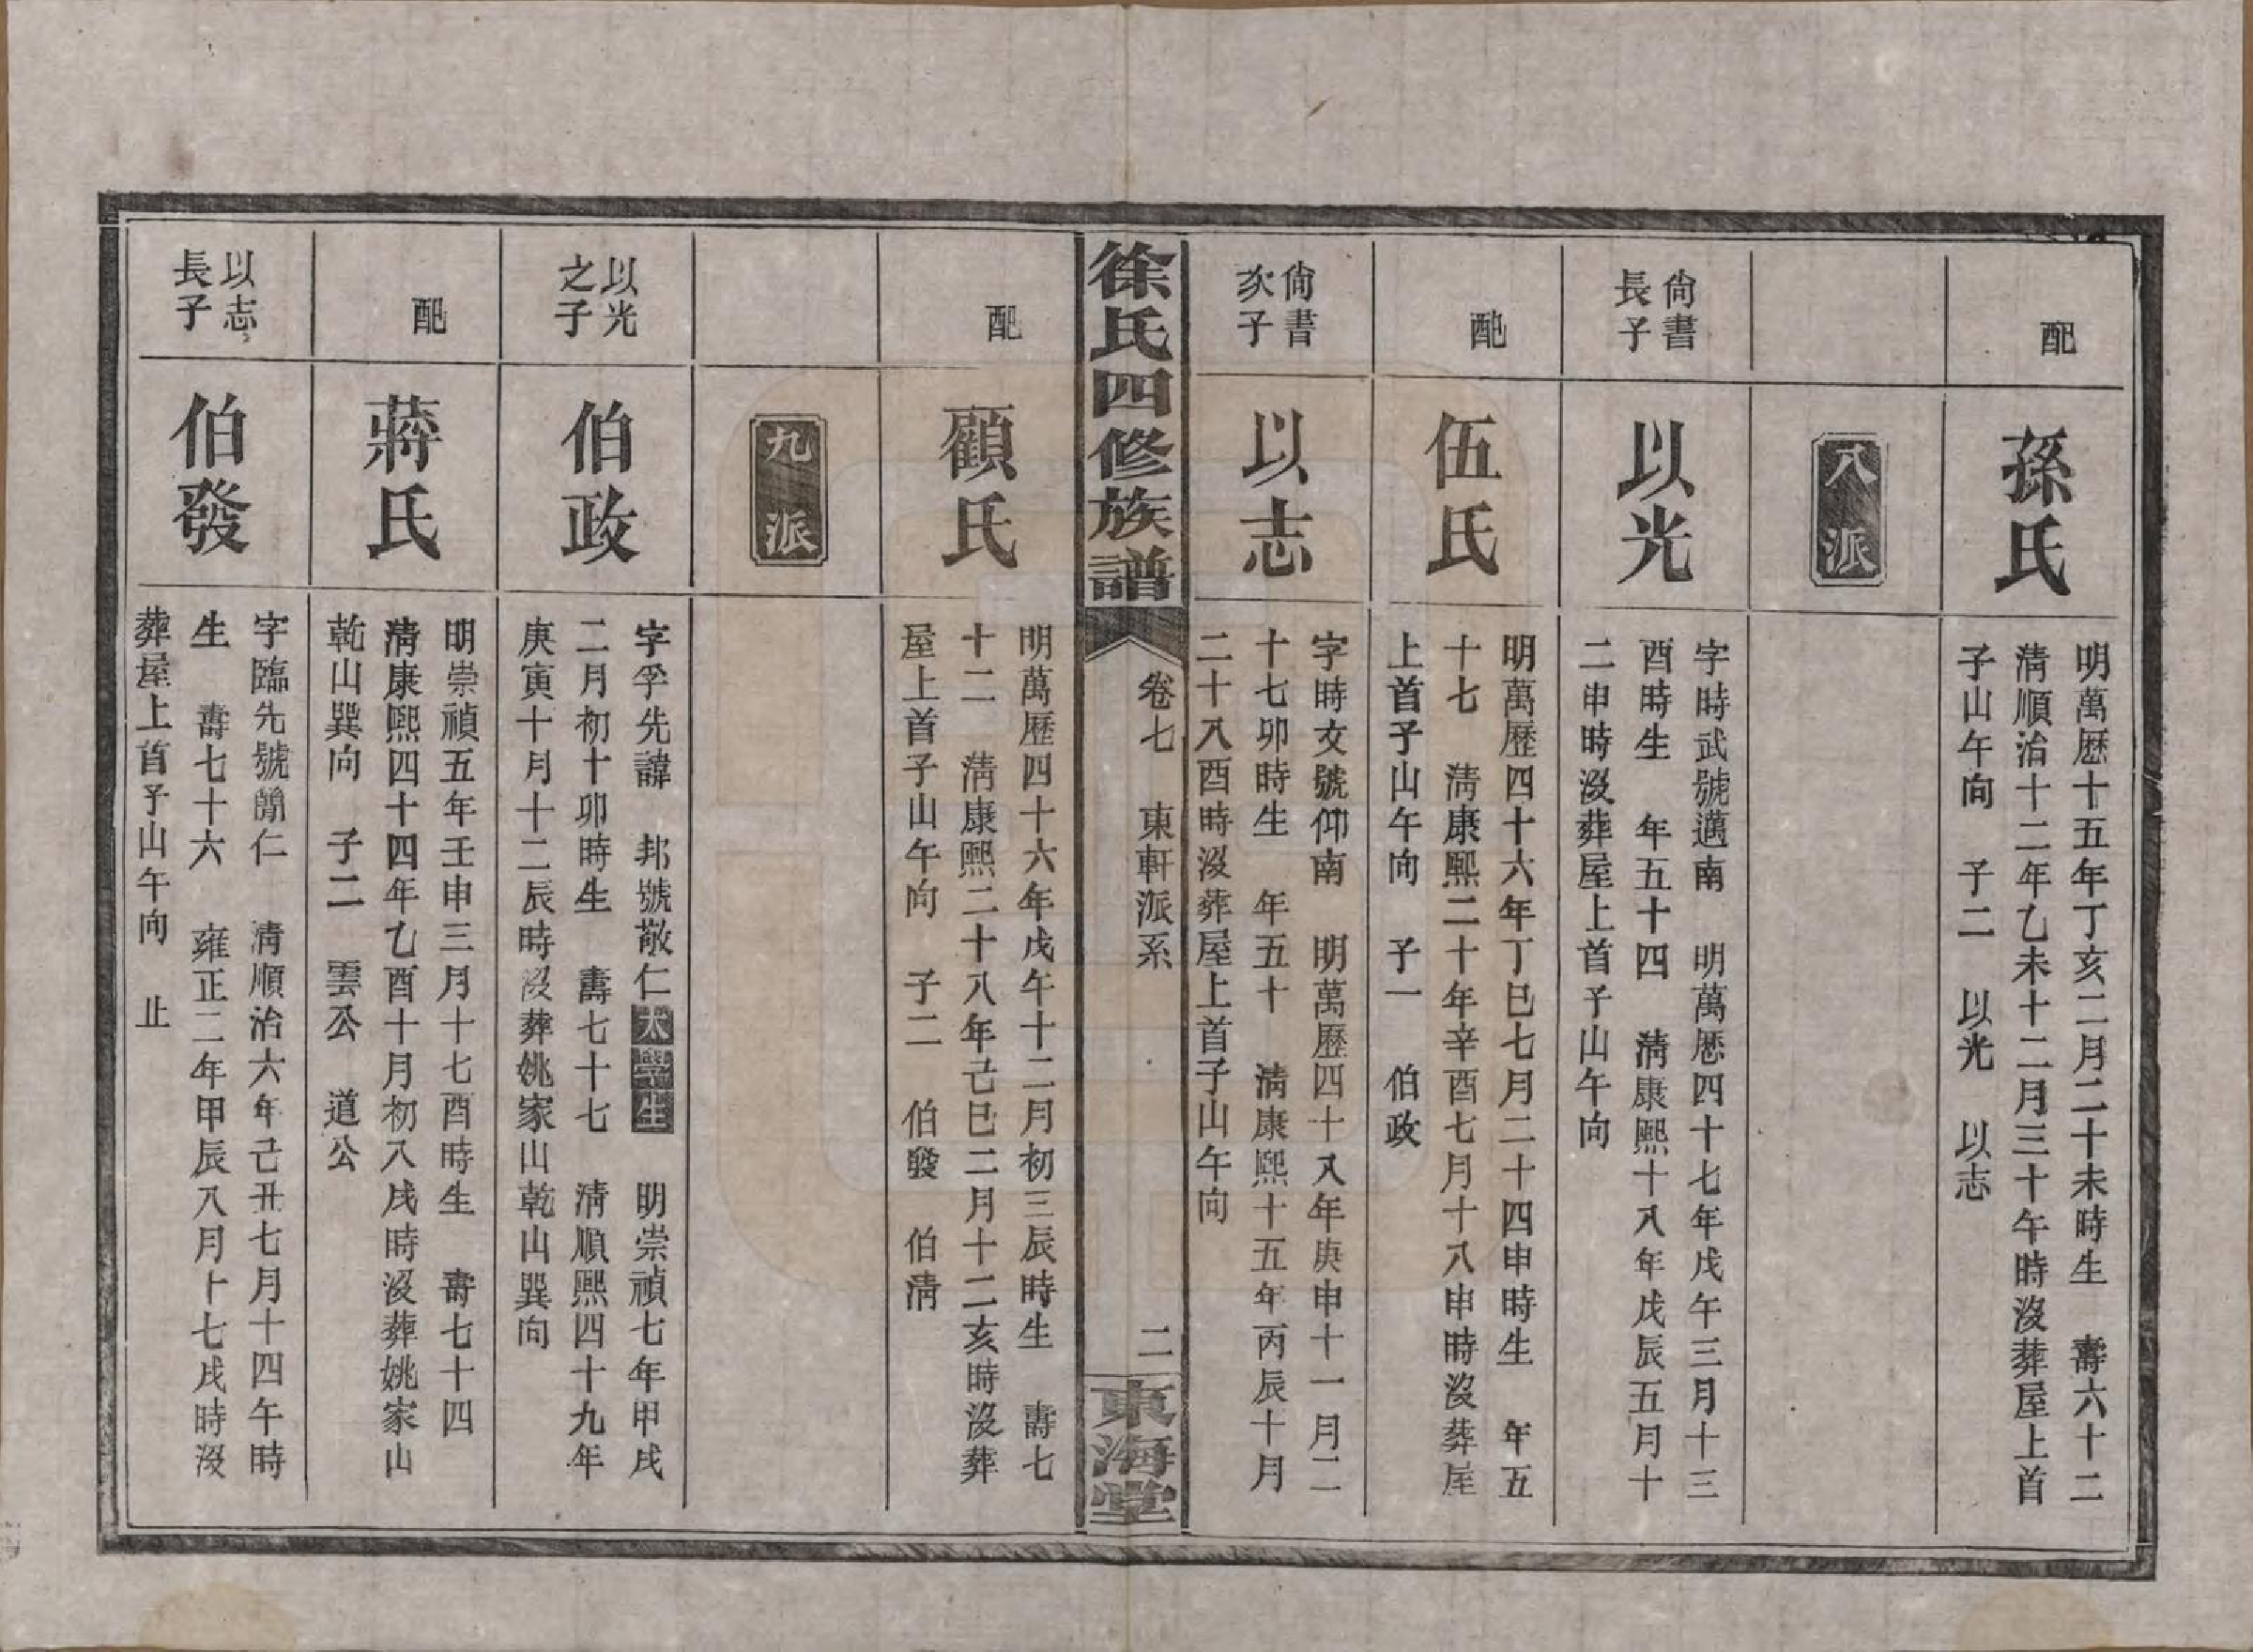 配
孫氏
明萬歷十五年丁亥二月二十未時生　壽六十二
淸順治十二年乙未十二月三十午時沒葬屋上首
子山午向　子二　以光　以志
八派
尙書
長子
以光
字時武號邁南　明萬歷四十七年戊午三月十三
酉時生　年五十四　淸康熙十八年戊辰五月十
二申時沒葬屋上首子山午向
配
伍氏
明萬歷四十六年丁巳七月二十四申時生　年五
十七　淸康熙二十年辛酉七月十八申時沒葬屋
上首子山午向　子一　伯政
尙書
次子
以志
字時文號仰南　明萬歷四十八年庚申十一月二
十七卯時生　年五十　淸康熙十五年丙辰十月
二十八酉時沒葬屋上首子山午向
徐氏四修族譜
卷七　東軒派系
二
東海堂
配
顧氏
明萬歷四十六年戊午十二月初三辰時生　壽七
十二　淸康熙二十八年己巳二月十二亥時沒葬
屋上首子山午向　子二　伯發　伯淸
九派
以光
之子
伯政
字孚先諱　邦號敬仁太學生　明崇禎七年甲戌
二月初十卯時生　壽七十七　淸順熙四十九年
庚寅十月十二辰時沒葬姚家山乾山巽向
配
蔣氏
明崇禎五年壬申三月十七酉時生　壽七十四
淸康熙四十四年乙酉十月初八戌時沒葬姚家山
乾山巽向　子二　雲公　道公
以志
長子
伯發
字臨先號簡仁　淸順治六年己丑七月十四午時
生　壽七十六　雍正二年甲辰八月十七戌時沒
葬屋上首子山午向　止